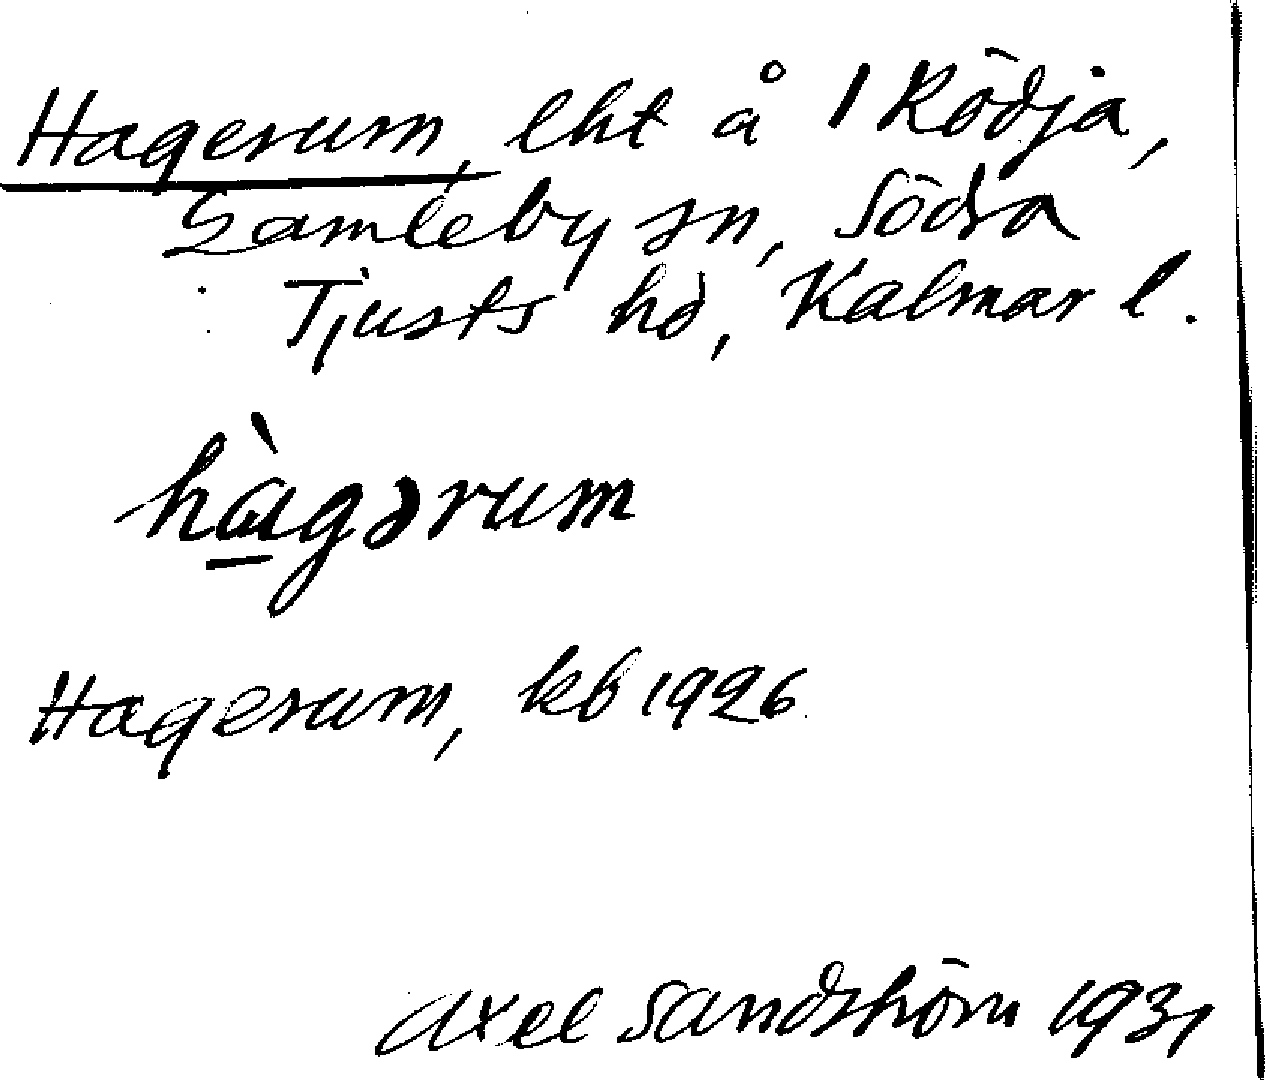 Hagerum, lht å 1 Rödja,
Gamleby sn, Södra
Tjusts hd, Kalmar l.
hàgərum
Hagerum, kb 1926
Axel Sandström 1931